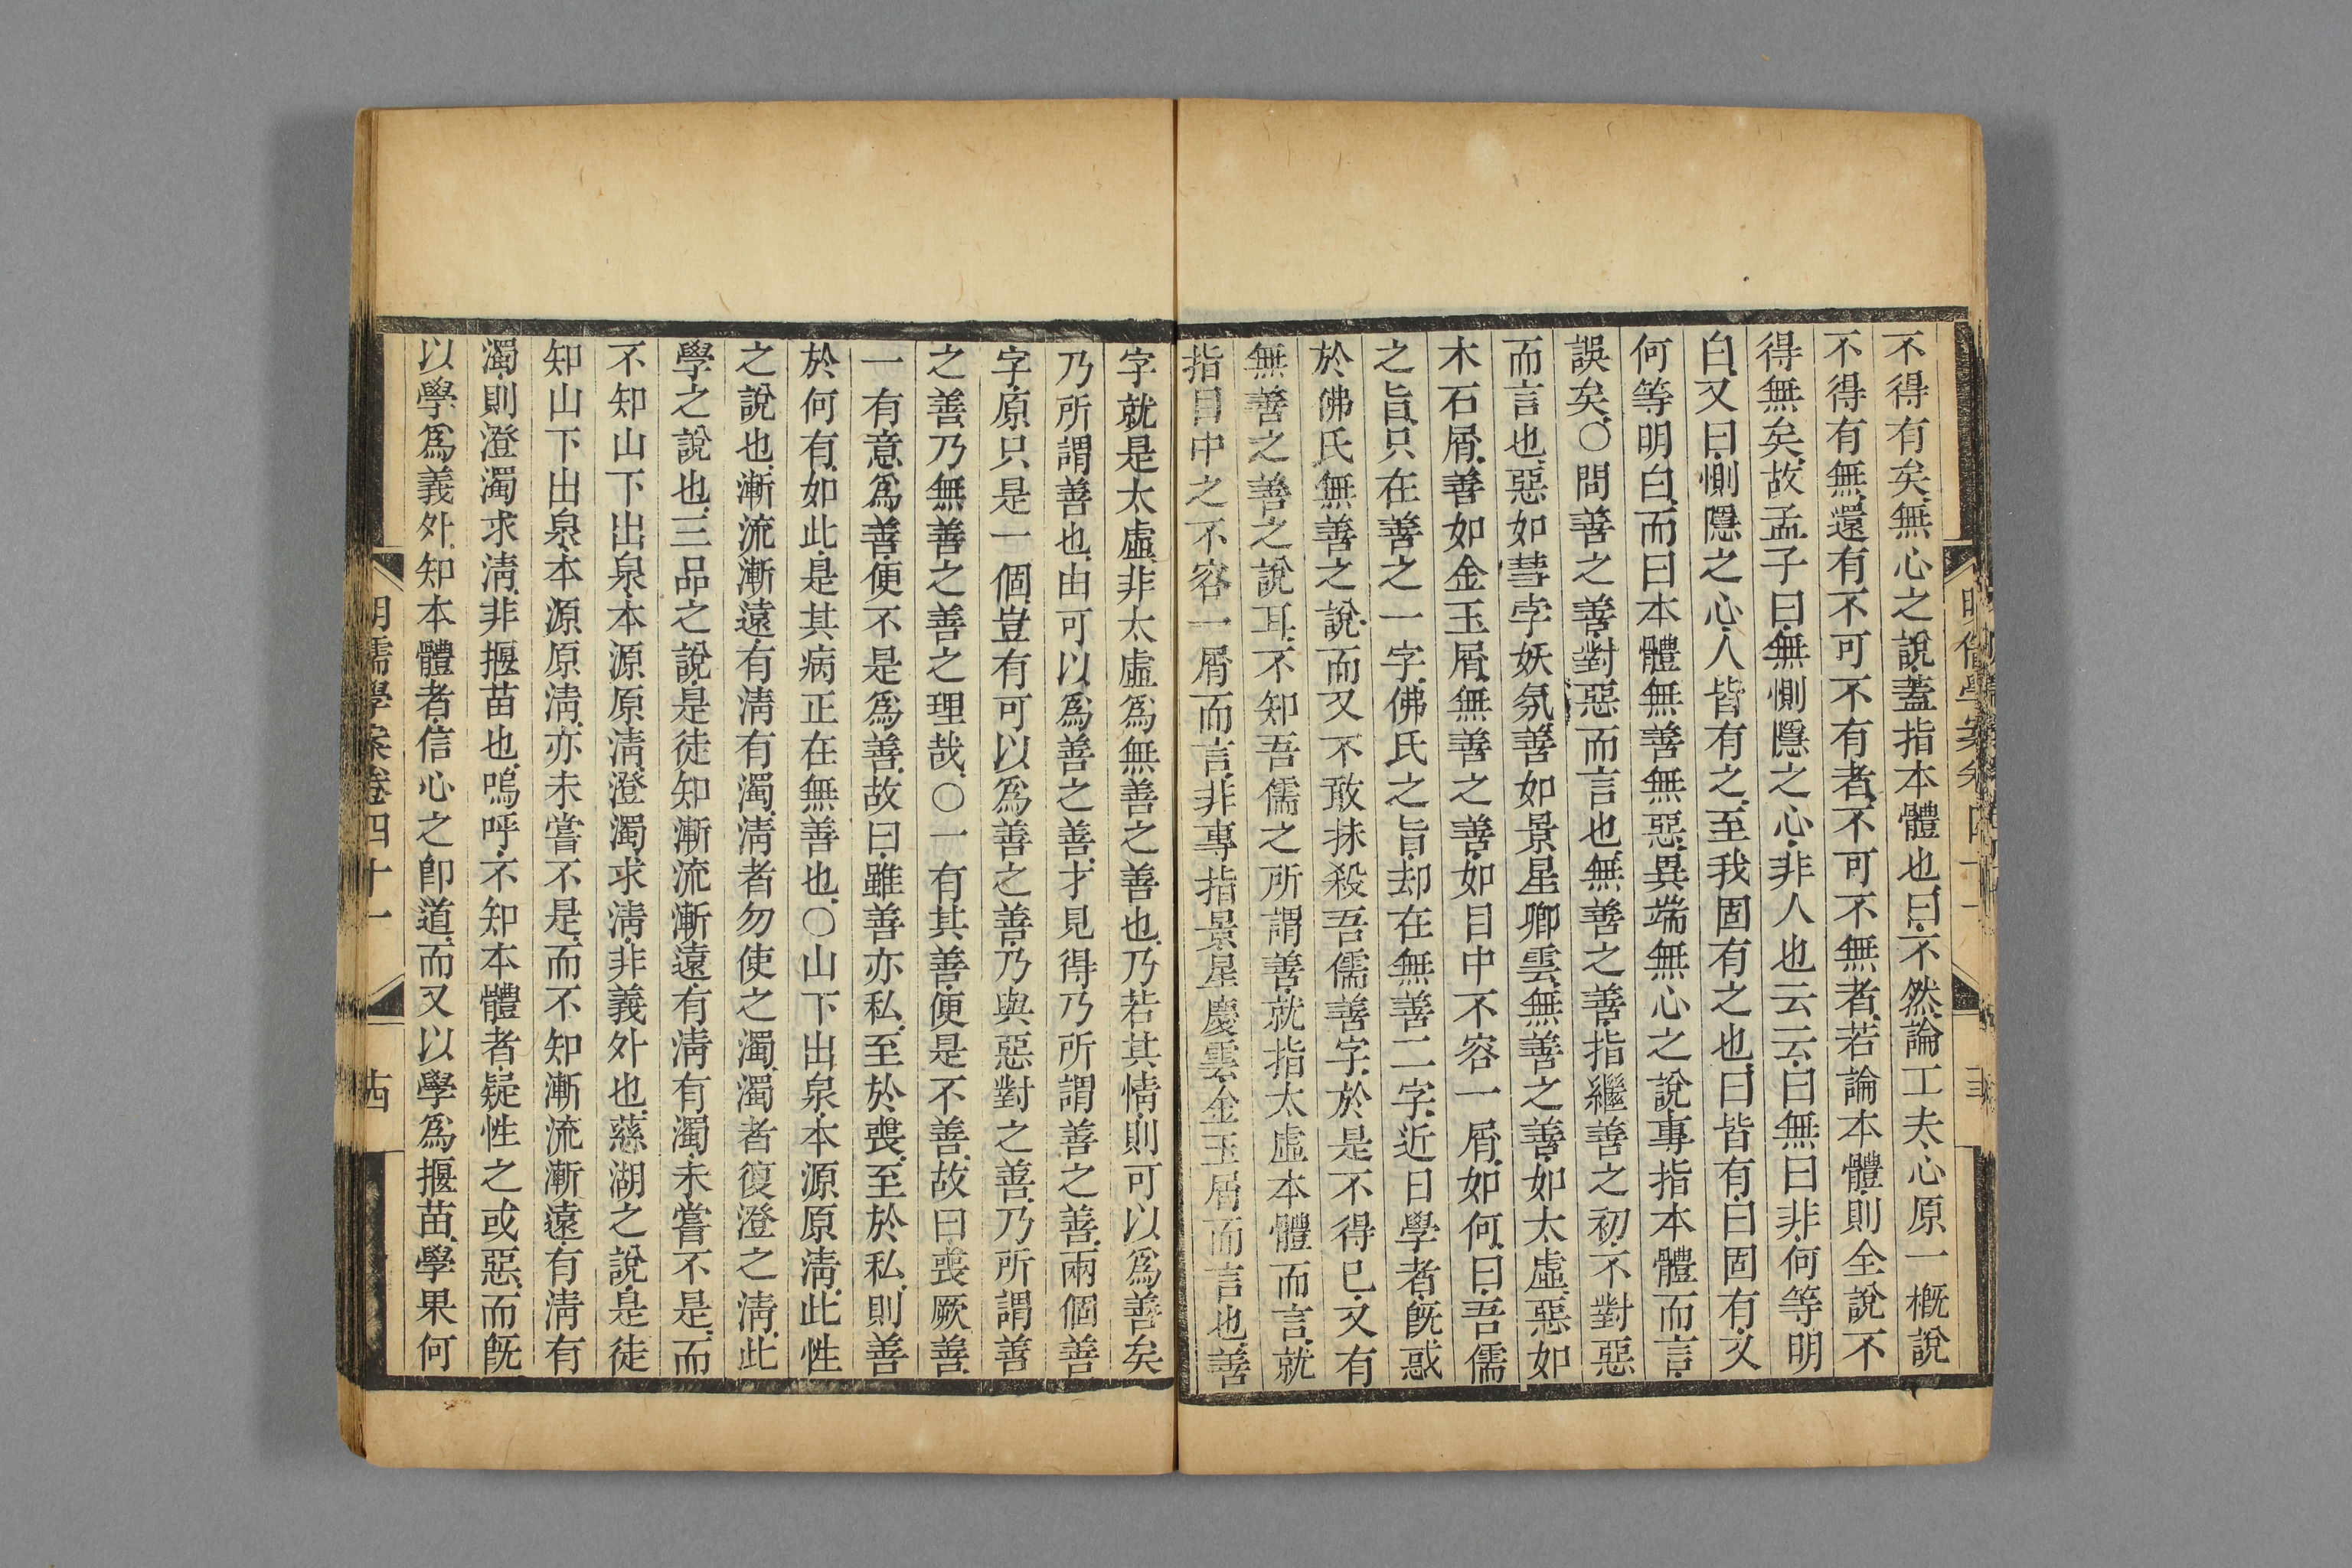 不得有矣無心之說蓋指本體也曰不然論工夫心原一概說
不得有無還有不可不有者不可不無者若論本體則全說不
得無矣故孟子曰無惻隱之心非人也云云曰無曰非何等明
白又曰惻隱之心人皆有之至我固有之也曰皆有曰固有又
何等明白而曰本體無善無惡異端無心之說專指本體而言
誤矣○問善之善對惡而言也無善之善指繼善之初不對惡
而言也惡如彗孛妖氛善如景星卿雲無善之善如太虛惡如
木石屑善如金玉屑無善之善如目中不容一屑如何曰吾儒
之旨只在善之一字佛氏之旨却在無善二字近日學者旣惑
於佛氏無善之說而又不敢抹殺吾儒善字於是不得已又有
無善之善之說耳不知吾儒之所謂善就指太虛本體而言就
指目中之不容一屑而言非專指景星慶雲金玉屑而言也善
字就是太虛非太虛爲無善之善也乃若其情則可以爲善矣
乃所謂善也由可以爲善之善才見得乃所謂善之善兩個善
字原只是一個豈有可以爲善之善乃與惡對之善乃所謂善
之善乃無善之善之理哉○一有其善便是不善故曰喪厥善
一有意爲善便不是爲善故曰雖善亦私至於喪至於私則善
於何有如此是其病正在無善也○山下出泉本源原淸此性
之說也漸流漸遠有淸有濁淸者勿使之濁濁者復澄之淸此
學之說也三品之說是徒知漸流漸遠有淸有濁未嘗不是而
不知山下出泉本源原淸澄濁求淸非義外也慈湖之說是徒
知山下出泉本源原淸亦未嘗不是而不知漸流漸遠有淸有
濁則澄濁求淸非揠苗也嗚呼不知本體者疑性之或惡而旣
以學爲義外知本體者信心之卽道而又以學爲揠苗學果何
明儒學案卷四十一